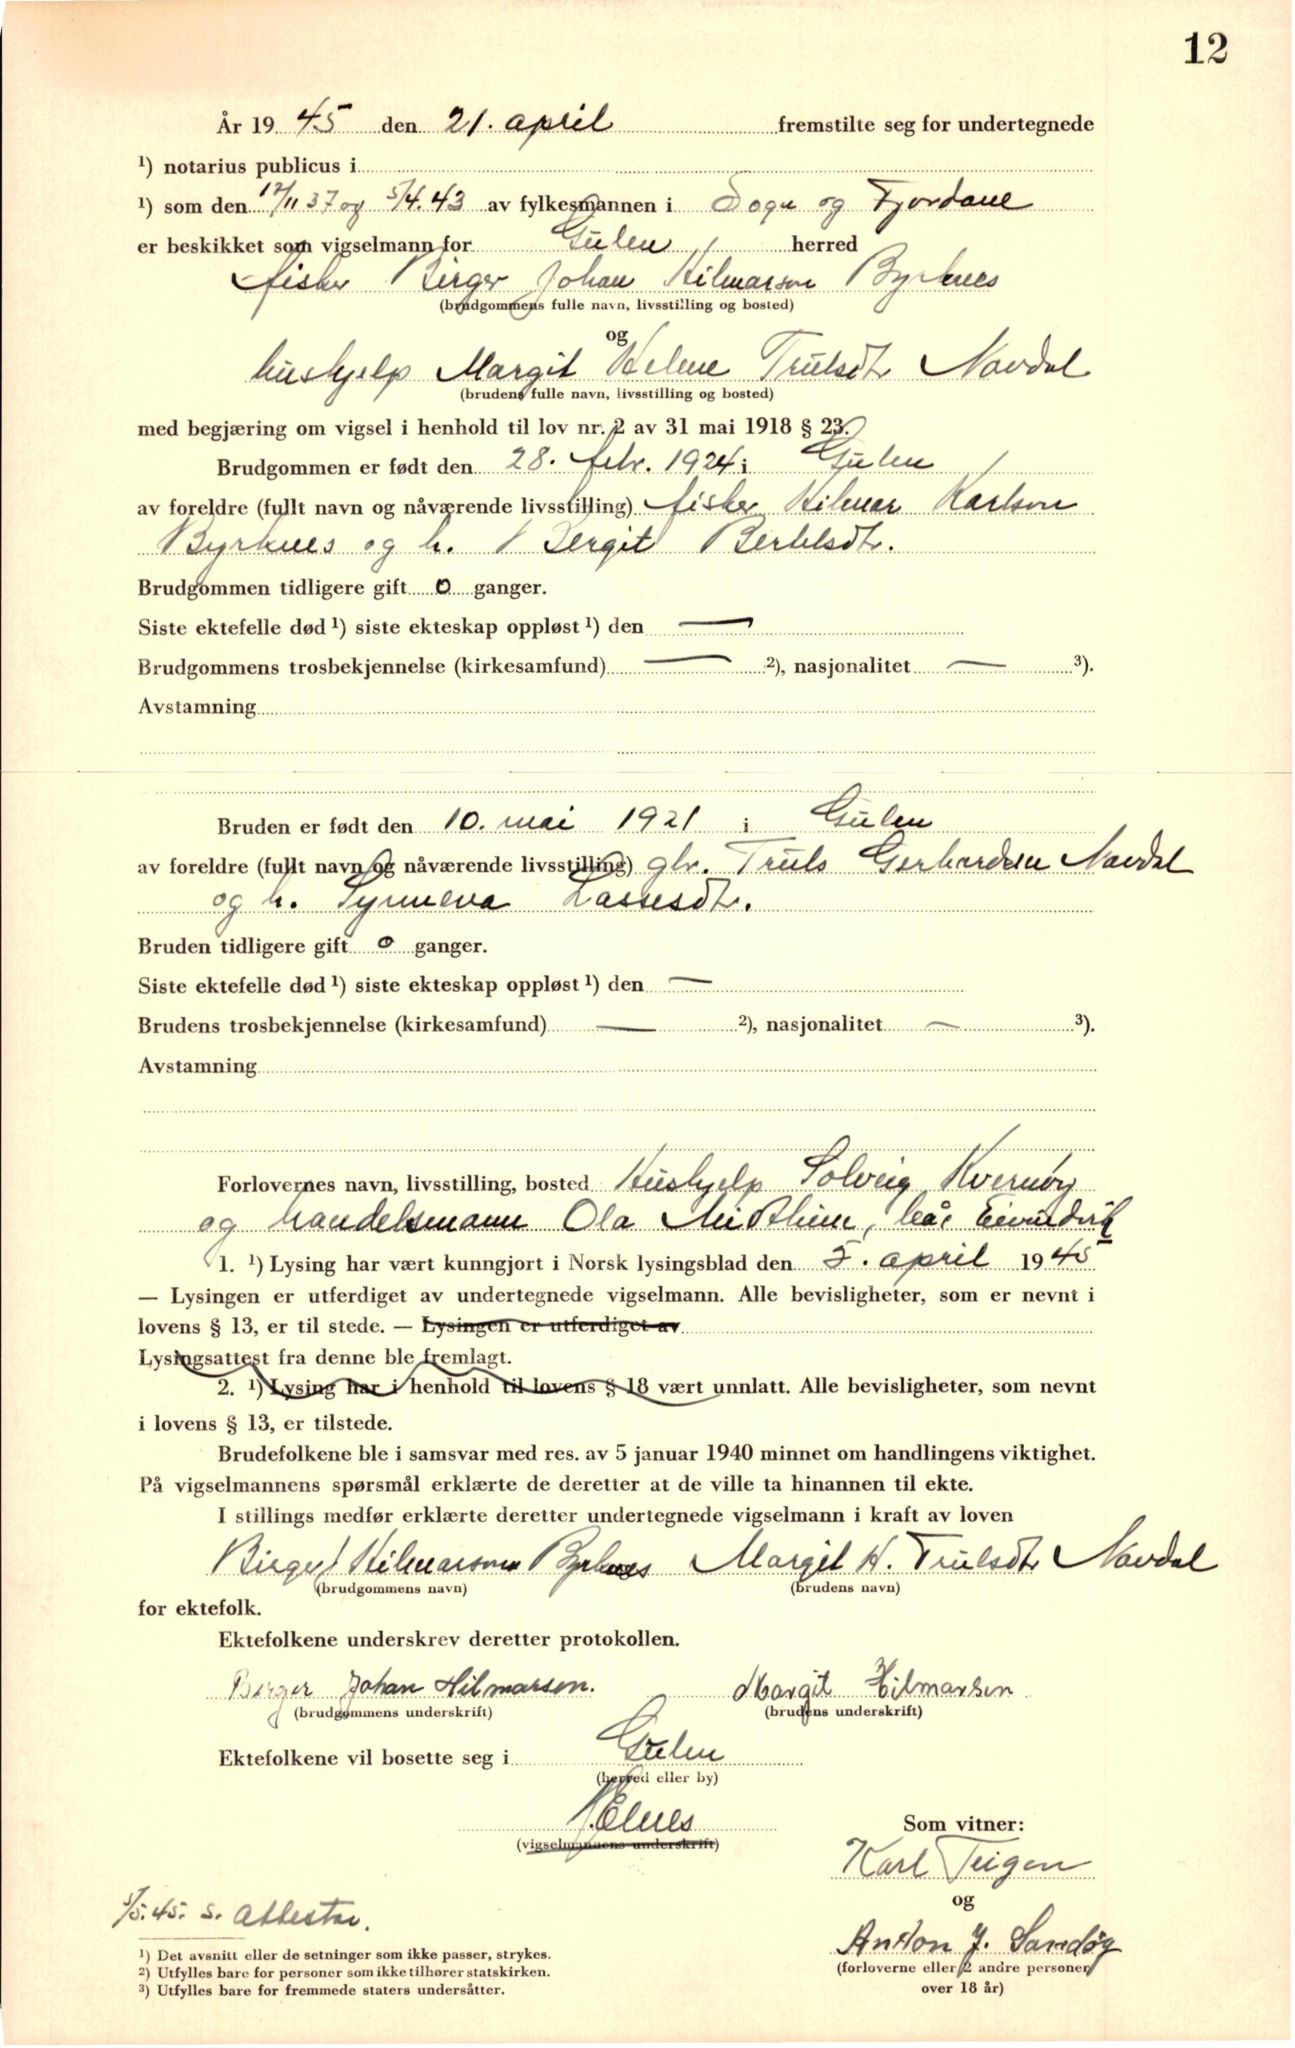 12
År 19 45 den 21. april fremstilte seg for undertegnede
¹) notarius publicus i
¹) som den 17/11 37 og 5/4.43 av fylkesmannen i Sogn og Fjordane
er beskikket som vigselmann for Gulen herred
fisker Birger Johan Hilmarson Byrknes
(brudgommens fulle navn, livsstilling og bosted)
og
hushjelp Margit Helene Trulsdtr Navdal
(brudens fulle navn, livsstilling og bosted)
med begjæring om vigsel i henhold til lov nr. 2 av 31 mai 1918 § 23.
Brudgommen er født den 28. febr. 1924 i Gulen
av foreldre (fullt navn og nåværende livsstilling) fisker Hilmar Karlson
Byrknes og h. Bergit Bertelsdtr.
Brudgommen tidligere gift 0 ganger.
Siste ektefelle død ¹) siste ekteskap oppløst ¹) den —
Brudgommens trosbekjennelse (kirkesamfund) — ²), nasjonalitet — ³).
Avstamning
Bruden er født den 10. mai 1921 i Gulen
av foreldre (fullt navn og nåværende livsstilling) gbr. Truls Gerhardsen Navdal
og h. Synneva Lassesdtr.
Bruden tidligere gift 0 ganger.
Siste ektefelle død ¹) siste ekteskap oppløst ¹) den —
Brudens trosbekjennelse (kirkesamfund) — ²), nasjonalitet — ³).
Avstamning
Forlovernes navn, livsstilling, bosted Hushjelp Solveig Kvernøy
og handelsmann Ola Midthun, Eivindvik
1. ¹) Lysing har vært kunngjort i Norsk lysingsblad den 5. april 19 45
— Lysingen er utferdiget av undertegnede vigselmann. Alle bevisligheter, som er nevnt i
lovens § 13, er til stede. — Lysingen er utferdiget av
Lysingsattest fra denne ble fremlagt.
2. ¹) Lysing har i henhold til lovens § 18 vært unnlatt. Alle bevisligheter, som nevnt
i lovens § 13, er tilstede.
Brudefolkene ble i samsvar med res. av 5 januar 1940 minnet om handlingens viktighet.
På vigselmannens spørsmål erklærte de deretter at de ville ta hinannen til ekte.
I stillings medfør erklærte deretter undertegnede vigselmann i kraft av loven
Birger J Hilmarson Byrknes Margit H. Trulsdtr Navdal
(brudgommens navn) (brudens navn)
for ektefolk.
Ektefolkene underskrev deretter protokollen.
Birger Johan Hilmarsen. Margit Hilmarsen
(brudgommens underskrift) (brudens underskrift)
Ektefolkene vil bosette seg i Gulen
(herred eller by)
Elnes
(vigselmannens underskrift)
Som vitner:
Karl Teigen
og
Anton J. Sandøy
(forloverne eller 2 andre personer
over 18 år)
5/5.45. s. attestar.
¹) Det avsnitt eller de setninger som ikke passer, strykes.
²) Utfylles bare for personer som ikke tilhører statskirken.
³) Utfylles bare for fremmede staters undersåtter.